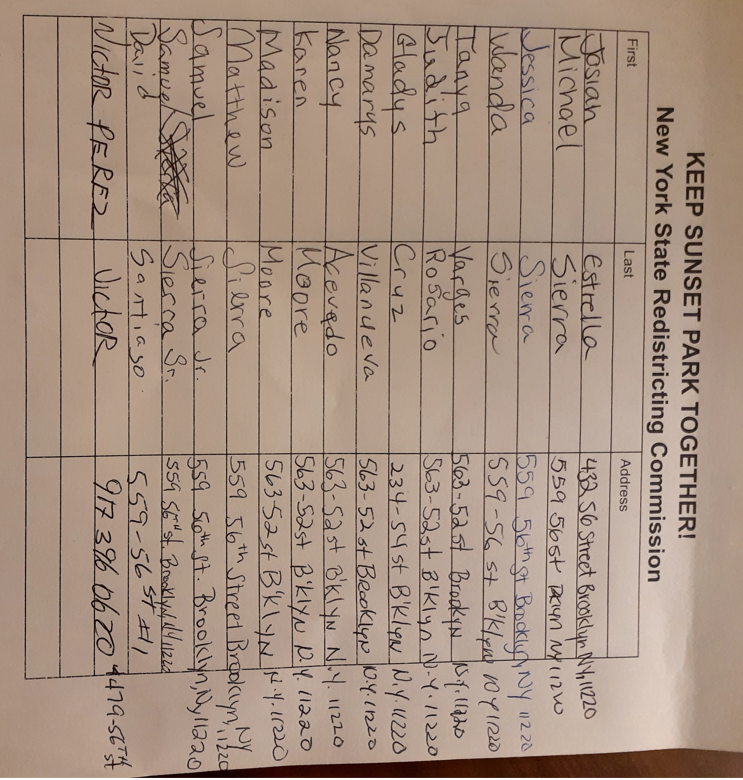 KEEP SUNSET PARK TOGETHER!
New York State Redistricting Commission
First Last Address
Josiah Estrella 432 56 Street Brooklyn NY, 11220
Michael Sierra 559 56 st NY
Jessica Sierra 559 56th st Brooklyn, NY 11220
Wanda Sierra 559-56 st B'klyn N.Y 11220
Tanya Varges 563-52 st Brooklyn N.Y. 11220
Judith Rosario 563-52 st B'Klyn N.Y. 11220
Gladys Cruz 234-54 st B'KlyN N.Y. 11220
Damarys Villanueva 563-52 st BrooklyN N.Y. 11220
Nancy Acevedo 563-52 st B'KlyN N.Y. 11220
Karen Moore 563-52 st B'KlyN N.Y. 11220
Madison Moore 563-52 st B'KlyN N.Y. 11220
Matthew Sierra 559 56th Street Brooklyn, NY 11220
Samuel Sierra Jr. 559 56th st. Brooklyn, Ny 11220
Samuel Sierra Sr. 559 56th st. Brooklyn, NY 11220
David Santiago 559-56 st #1,
VICTOR PEREZ VICTOR 917 396 0620 479-56TH st